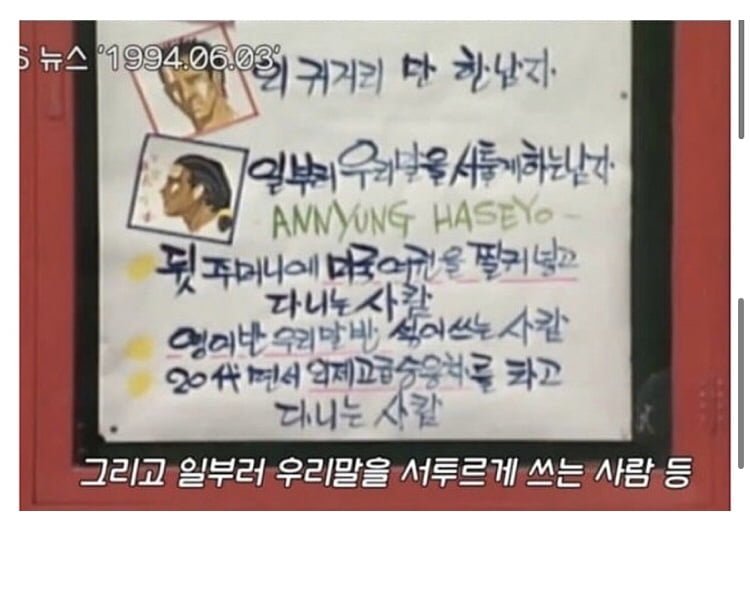 S 뉴스 '1994.06.03'
귀거리 만 한 남자.
일부러 우리말을 서툴게하는남자.
- ANNYUNG HASEYO -
뒷 주머니에 미국여권을 찔러 넣고
다니는 사람
영어반 우리말반 섞어쓰는 사람
20代 면서 외제고급승용차를 타고
다니는 사람
그리고 일부러 우리말을 서투르게 쓰는 사람 등